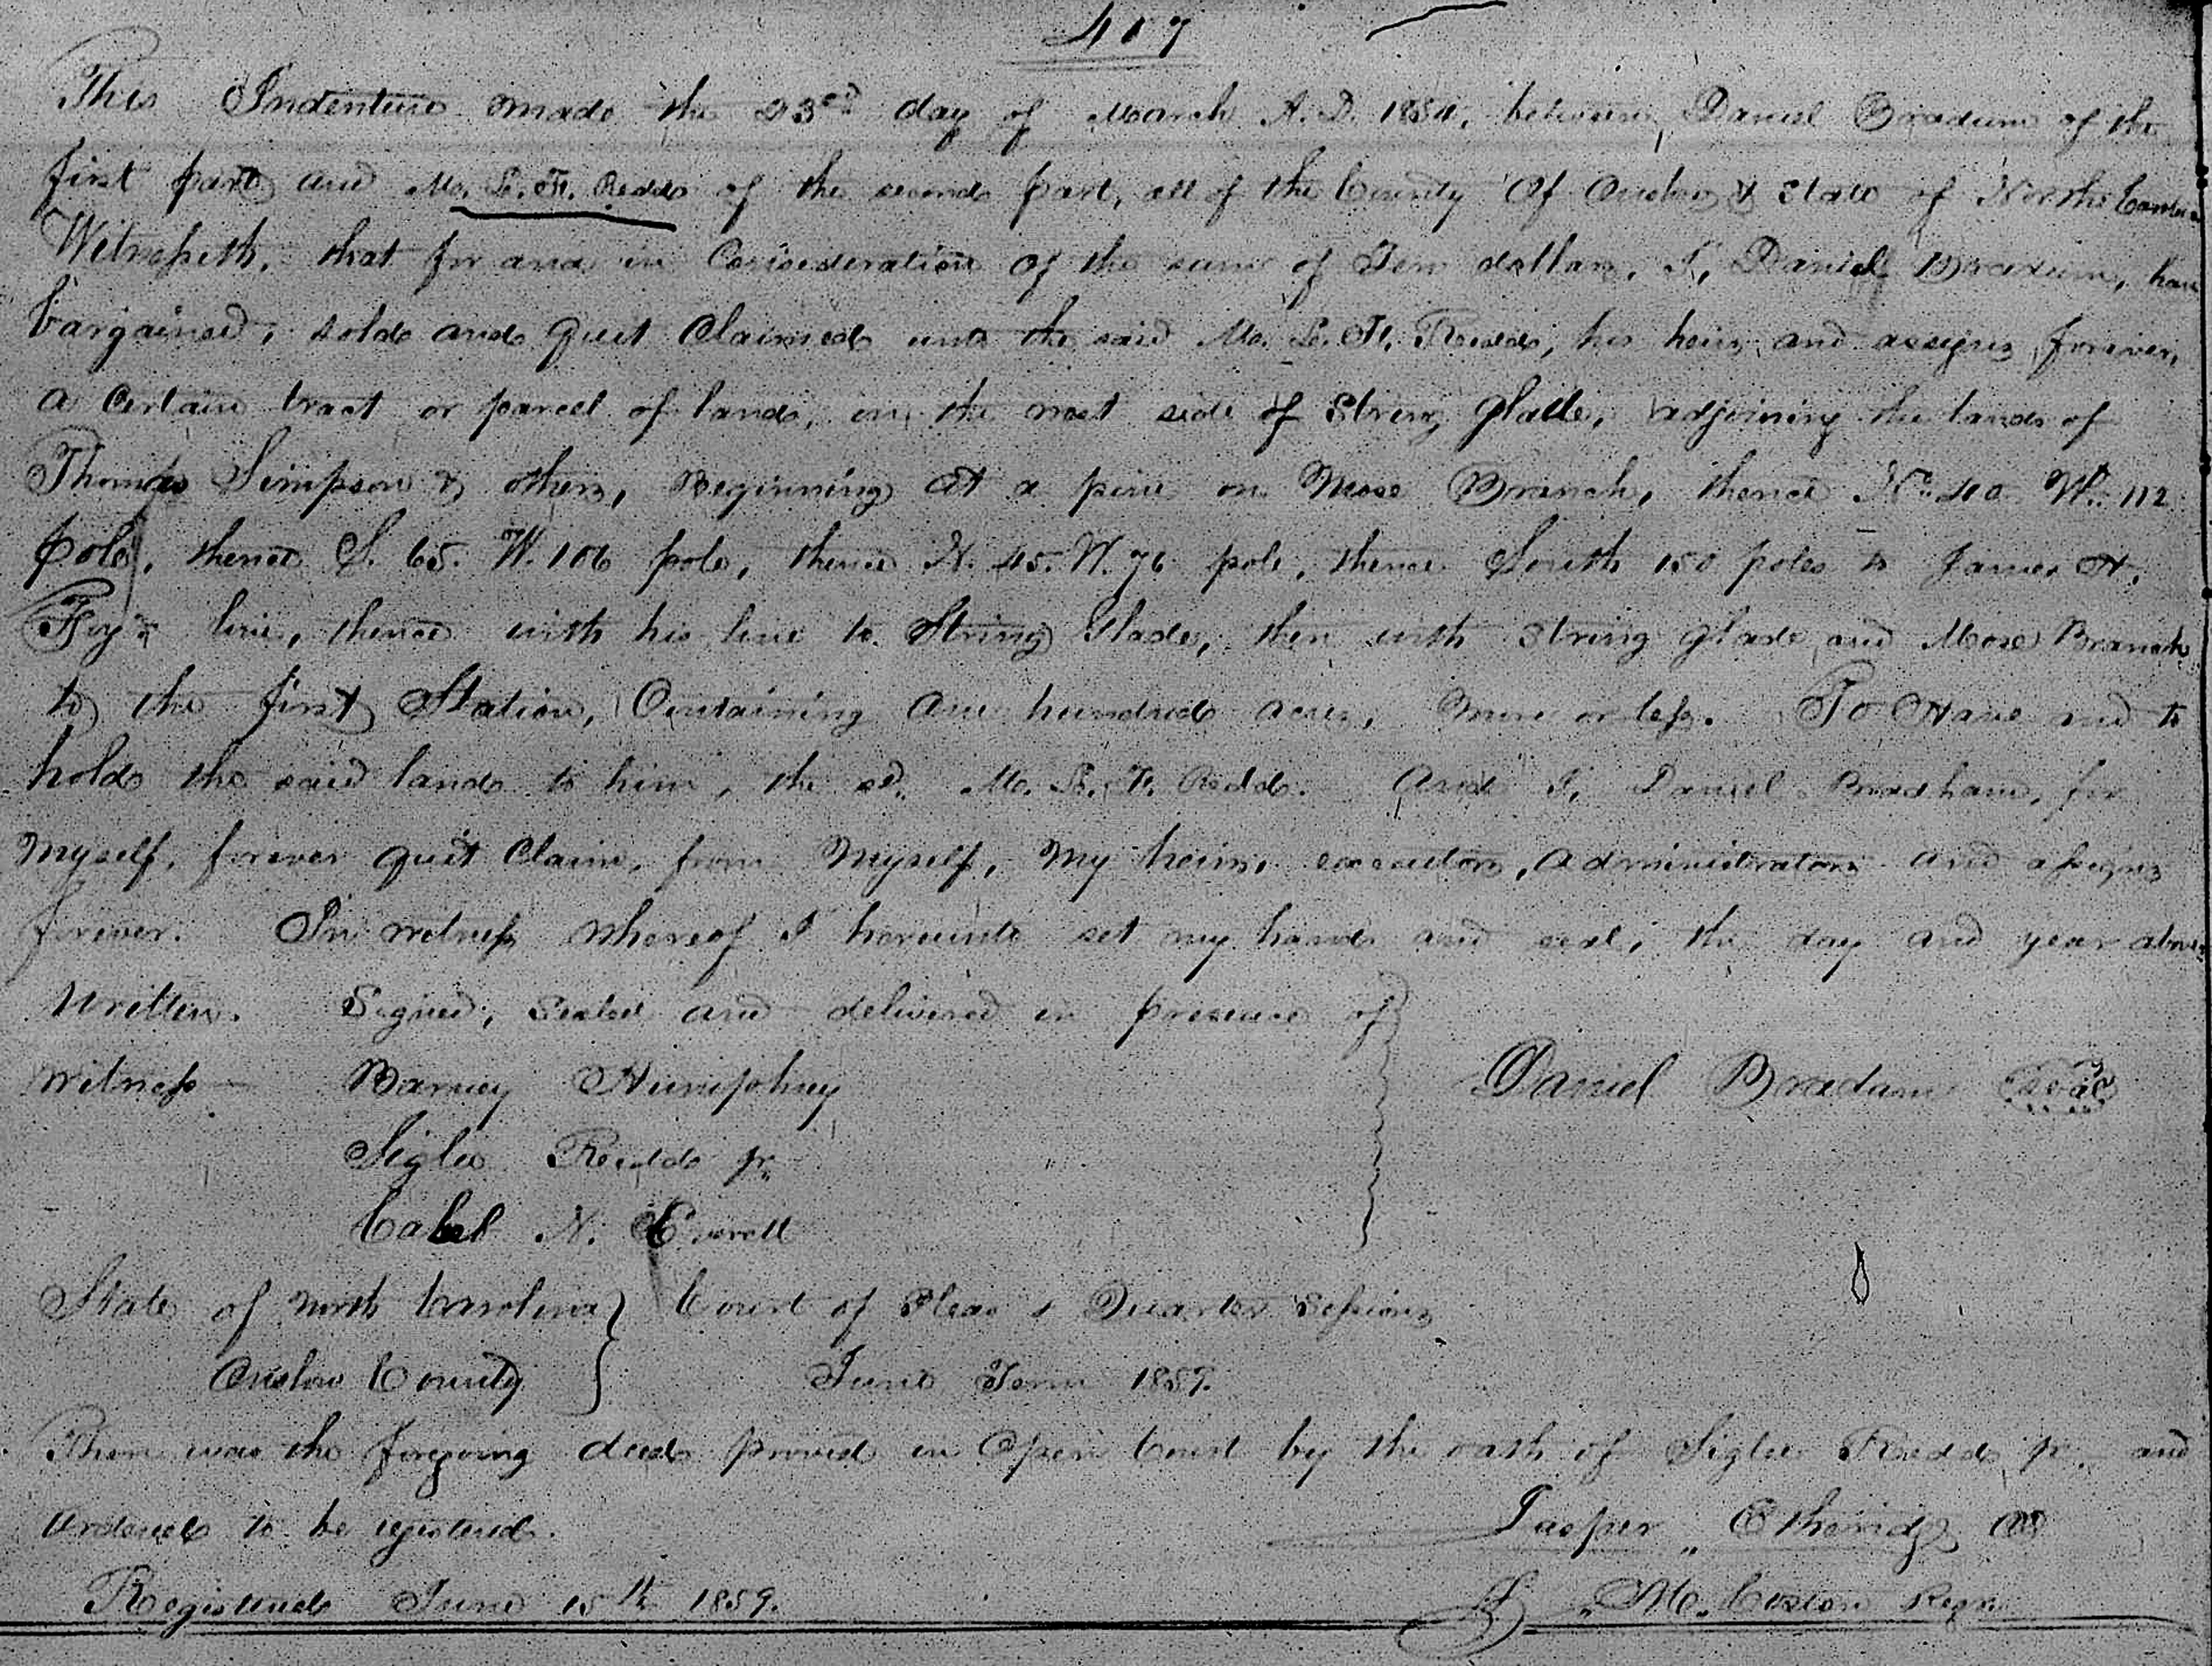 417
This Indenture made the 23rd day of March A.D. 1854, between Daniel Bradum of the
first part and M. L. F. Redd of the second part, all of the County Of Onslow & State of North Carolina
Witnesseth, that for and in Consideration of the sum of Ten dollars, I, Daniel Bradum, have
bargained, sold and quit Claimed unto the said M. L. F. Redd, his heirs and assigns forever,
a Certain tract or parcel of land, on the west side of String Glade, adjoining the lands of
Thomas Simpson & others, Beginning at a pine on Mose Branch, thence No. 40 W. 112
pole, thence S. 65. W. 106 pole, thence N. 45. W. 76 pole, thence South 150 poles to James H.
Foy's line, thence with his line to String Glade, then with String glade and Mose Branch
to the first Station, Containing One hundred acres, more or less. To Have and to
hold the said land to him, the sd. M. L. F. Redd. And I, Daniel Bradham, for
myself, forever quit Claim, from Myself, my heirs, executors, administrators and assigns
forever. In witness whereof I hereunto set my hand and seal, the day and year above
Written. Signed, sealed and delivered in presence of
Witness Barney Humphrey Daniel Bradum seal
Siglee Redd jr.
Caleb N. Everett
State of North Carolina Court of Pleas & Quarter Sessions
Onslow County June Term 1859.
Then was the foregoing deed proved in Open Court by the oath of Siglee Redd jr. and
Ordered to be registered.
Jasper Etheridge
Registered June 15th 1859. M. Coston Regr.